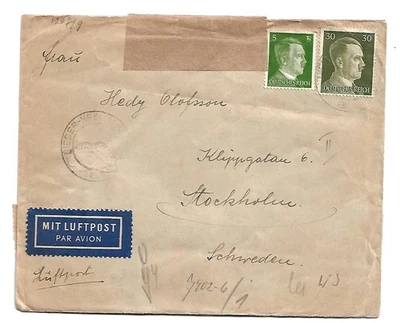 5
30 30
DEUTSCHES REICH DEUTSCHES REICH
Frau
Hedy Olofsson
Klippgatan 6. II
Stockholm.
Schweden.
MIT LUFTPOST
PAR AVION
Luftpost